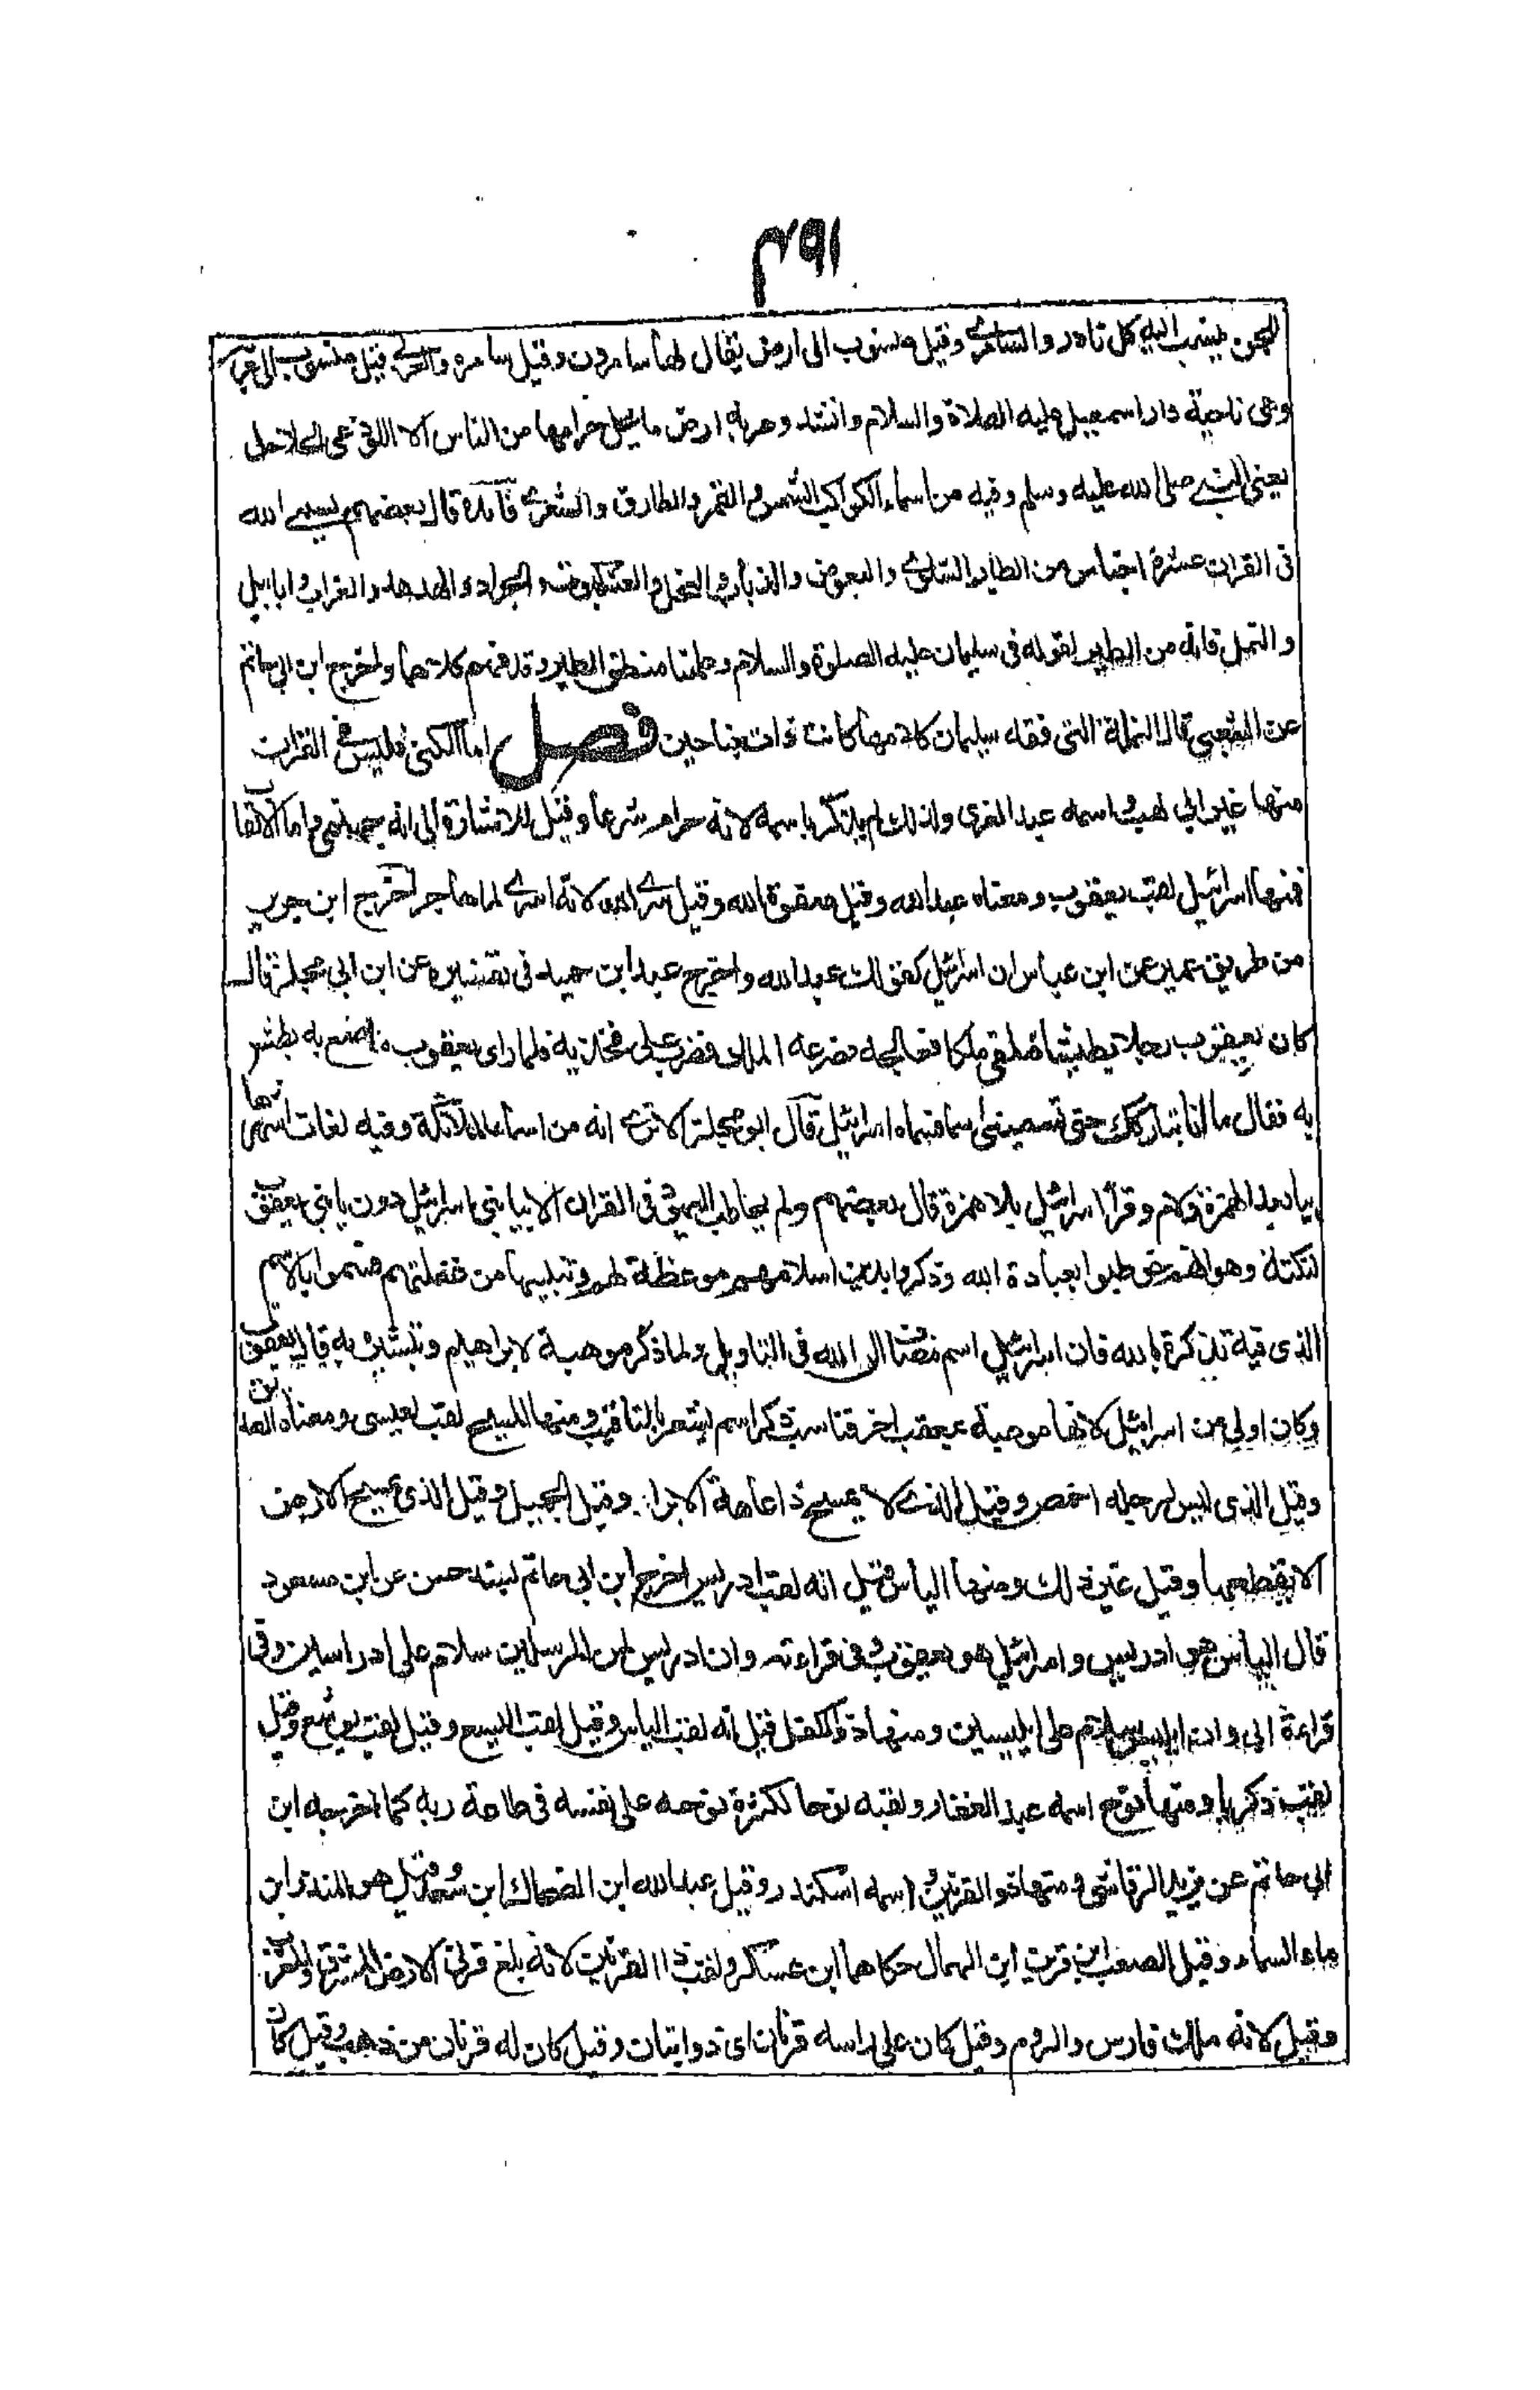 ٤٩١
للجن ينسب اليه كل نادر والسامري وقيل منسوب الى ارض يقال لها سامرون وقيل سامره والعربي قيل منسوب الى عربة
وهى ناحية دار اسمعيل عليه الصلاة والسلام وانشد وعربة ارض ما يحل حرامها من الناس الا اللوذعى الحلاحل
يعنى النبي صلى الله عليه وسلم وفيه من اسماء الكواكب الشمس والقمر والطارق والشعري فائدة قال بعضهم سمى الله
فى القران عشرة اجناس من الطير السلوى والبعوض والذباب والنحل والعنكبوت والجراد والهدهد والغراب وابابيل
والنمل فانه من الطير لقوله فى سليمان عليه الصلوة والسلام وعلمنا منطق الطير وقد فهم كلامها واخرج ابن ابى حاتم
عن الشعبي قال النملة التى فقه سليمان كلامها كانت ذوات جناحين فصل اما الكنى فليس فى القران
منها غير ابى لهب واسمه عبد العزى ولذلك لم يذكر باسمه لانه حرام شرعا وقيل للاشارة الى انه جهنمى واما الالقاب
فمنها اسرائيل لقب يعقوب ومعناه عبد الله وقيل صفوة الله وقيل سرى الله لانه اسرى لما هاجر اخرج ابن جرير
من طريق عمير عن ابن عباس ان اسرائيل كقولك عبد الله واخرج عبد ابن حميد فى تفسيره عن ابن ابى مجلز قال
كان يعقوب رجلا بطيشا فلقى ملكا فعالجه فصرعه الملك فضرب على فخذيه فلما راى يعقوب ما صنع به بطش
به فقال ما انا بتاركك حتى تسمينى اسما فسماه اسرائيل قال ابو مجلز الا ترى انه من اسماء الملائكة وفيه لغات اشهرها
بياء بعد الهمزة ولام وقرأ اسرائيل بلا همزة قال بعضهم ولم يخاطب اليهود فى القران الا بيا بنى اسرائيل دون يا بنى يعقوب
لنكتة وهو انهم خوطبوا بعبادة الله وذكروا بدين اسلافهم موعظة لهم وتنبيها من غفلتهم فسموا بالاسم
الذى فيه تذكرة بالله فان اسرائيل اسم مضاف الى الله فى التاويل ولما ذكر موهبة لابراهيم وتبشيره به قال يعقوب
وكان اولى من اسرائيل لانها موهبة بمعقب اخر فناسب ذكر اسم يشعر بالتعقيب ومنها المسيح لقب لعيسى ومعناه الصديق
وقيل الذى ليس لرجله اخمص وقيل الذى لا يمسح ذا عاهة الا برا وقيل الجميل وقيل الذى يمسح الارض
اى يقطعها وقيل غير ذلك ومنها الياس قيل انه لقب ادريس اخرج ابن ابى حاتم بسند حسن عن ابن مسعود
قال الياس هو ادريس واسرائيل هو يعقوب وفى قراءته وان ادريس لمن المرسلين سلام على ادراسين وفى
قراءة ابى وان ايليس سلام على ايليسين ومنها ذو الكفل قيل انه لقب الياس وقيل لقب اليسع وقيل لقب يوشع وقيل
لقب زكريا ومنها نوح اسمه عبد الغفار ولقبه نوحا لكثرة نوحه على نفسه فى طاعة ربه كما اخرجه ابن
ابى حاتم عن يزيد الرقاشى ومنها ذو القرنين اسمه اسكندر وقيل عبد الله ابن الضحاك ابن سعد وقيل هو المنذر ابن
ماء السماء وقيل الصعب ابن قرين ابن الهمال حكاهما ابن عسكر ولقب ذا القرنين لانه بلغ قرنى الارض المشرق والمغرب
وقيل لانه ملك فارس والروم وقيل كان على راسه قرنان اى ذوابتان وقيل كان له قرنان من ذهب وقيل كان